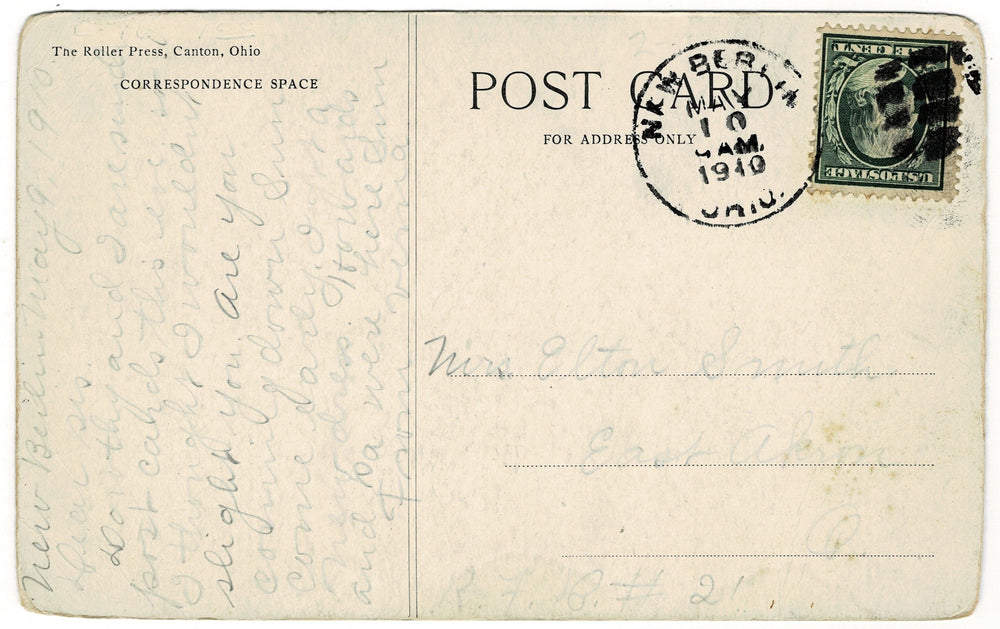 The Roller Press, Canton, Ohio
CORRESPONDENCE SPACE
New Berlin May 9, 1910
Dear sis.
Dorothy and I are send
post cards this eve so
I thought I wouldent
slight you are you
coming down Sun
come early I got a
new dress. Howards
and Pa were here Sun
From Verna
POST CARD
FOR ADDRESS ONLY
NEW BERLIN
MAY
10
AM.
1910
OHIO.
U.S. POSTAGE
ONE CENT
Mrs Elton Smith
East Akron
O.
R. F. # 21